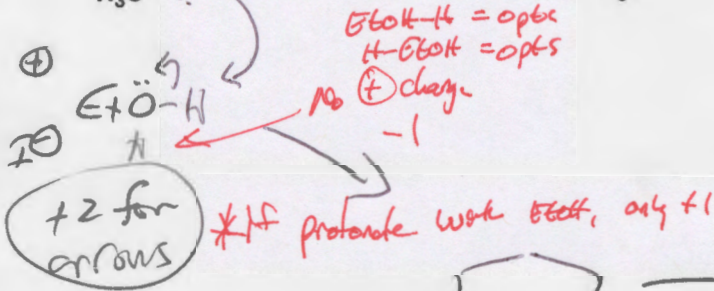 EtOH-H = opts
H-EtOH = opts
⊕
No ⊕ charge
EtÖ-H
-1
I⊖
H
+2 for
arrows
*If protonate with EtOH, only +1